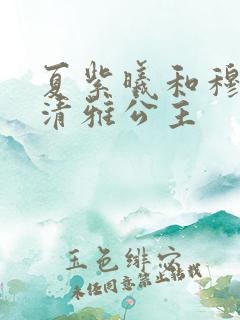 夏紫曦和穆
清雅公主
玉色绯穴
未经同意禁止转载